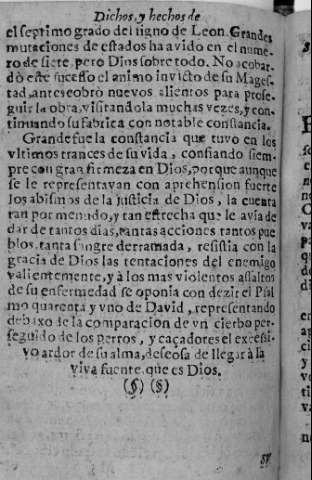 Dichos, y hechos de
el septimo grado del signo de Leon. Grandes
mutaciones de estados ha avido en el nume-
ro de siete, pero Dios sobre todo. No acobar-
dò este sucesso el animo invicto de su Mages-
tad, antes cobrò nuevos alientos para prose-
guir la obra, visitandola muchas vezes, y con-
tinuando su fabrica con notable constancia.
Grande fue la constancia que tuvo en los
vltimos trances de su vida, confiando siem-
pre con gran firmeza en Dios, porque aunque
se le representavan con aprehension fuerte
los abismos de la justicia de Dios, la cuenta
tan por menudo, y tan estrecha que le avia de
dar de tantos dias, tantas acciones tantos pue
blos, tanta sangre derramada, resistia con la
gracia de Dios las tentaciones del enemigo
valientemente, y à los mas violentos assaltos
de su enfermedad se oponia con dezir el Psal
mo quarenta y vno de David, representando
debaxo de la comparacion de vn cierbo per-
seguido de los perros, y caçadores el excessi-
vo ardor de su alma, deseosa de llegar à la
viva fuente, que es Dios.
(§) (§)